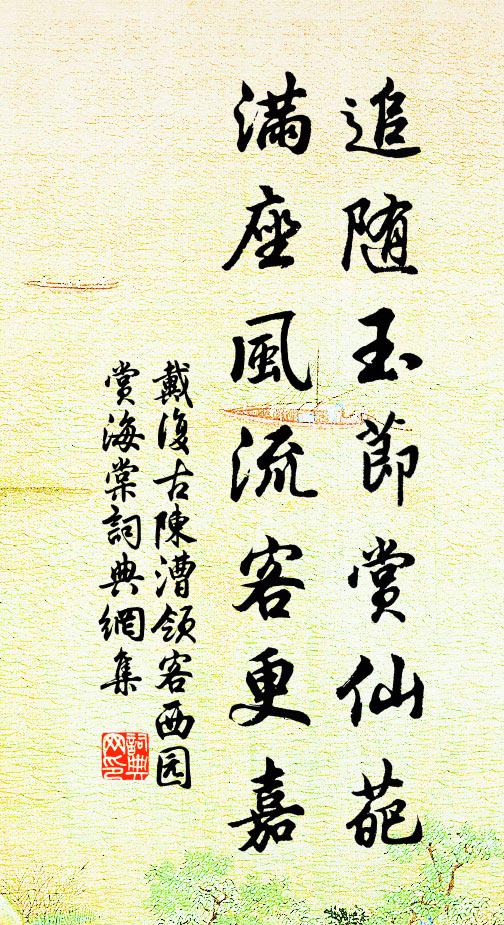 追随玉節賞仙葩
滿座風流客更嘉
戴復古陳漕領客西园
賞海棠詞典網集
詞典网印